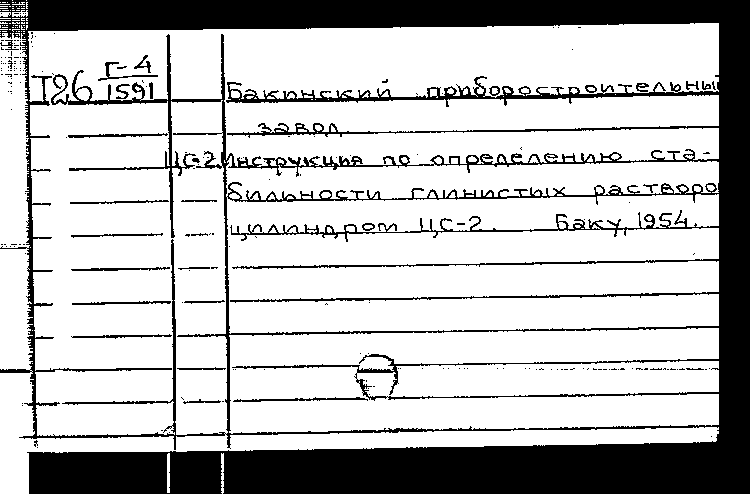 Т26 Г-4
1591
Бакинский приборостроительный
завод
ЦС-2. Инструкция по определению ста-
бильности глинистых растворо
цилиндром ЦС-2. Баку, 1954.